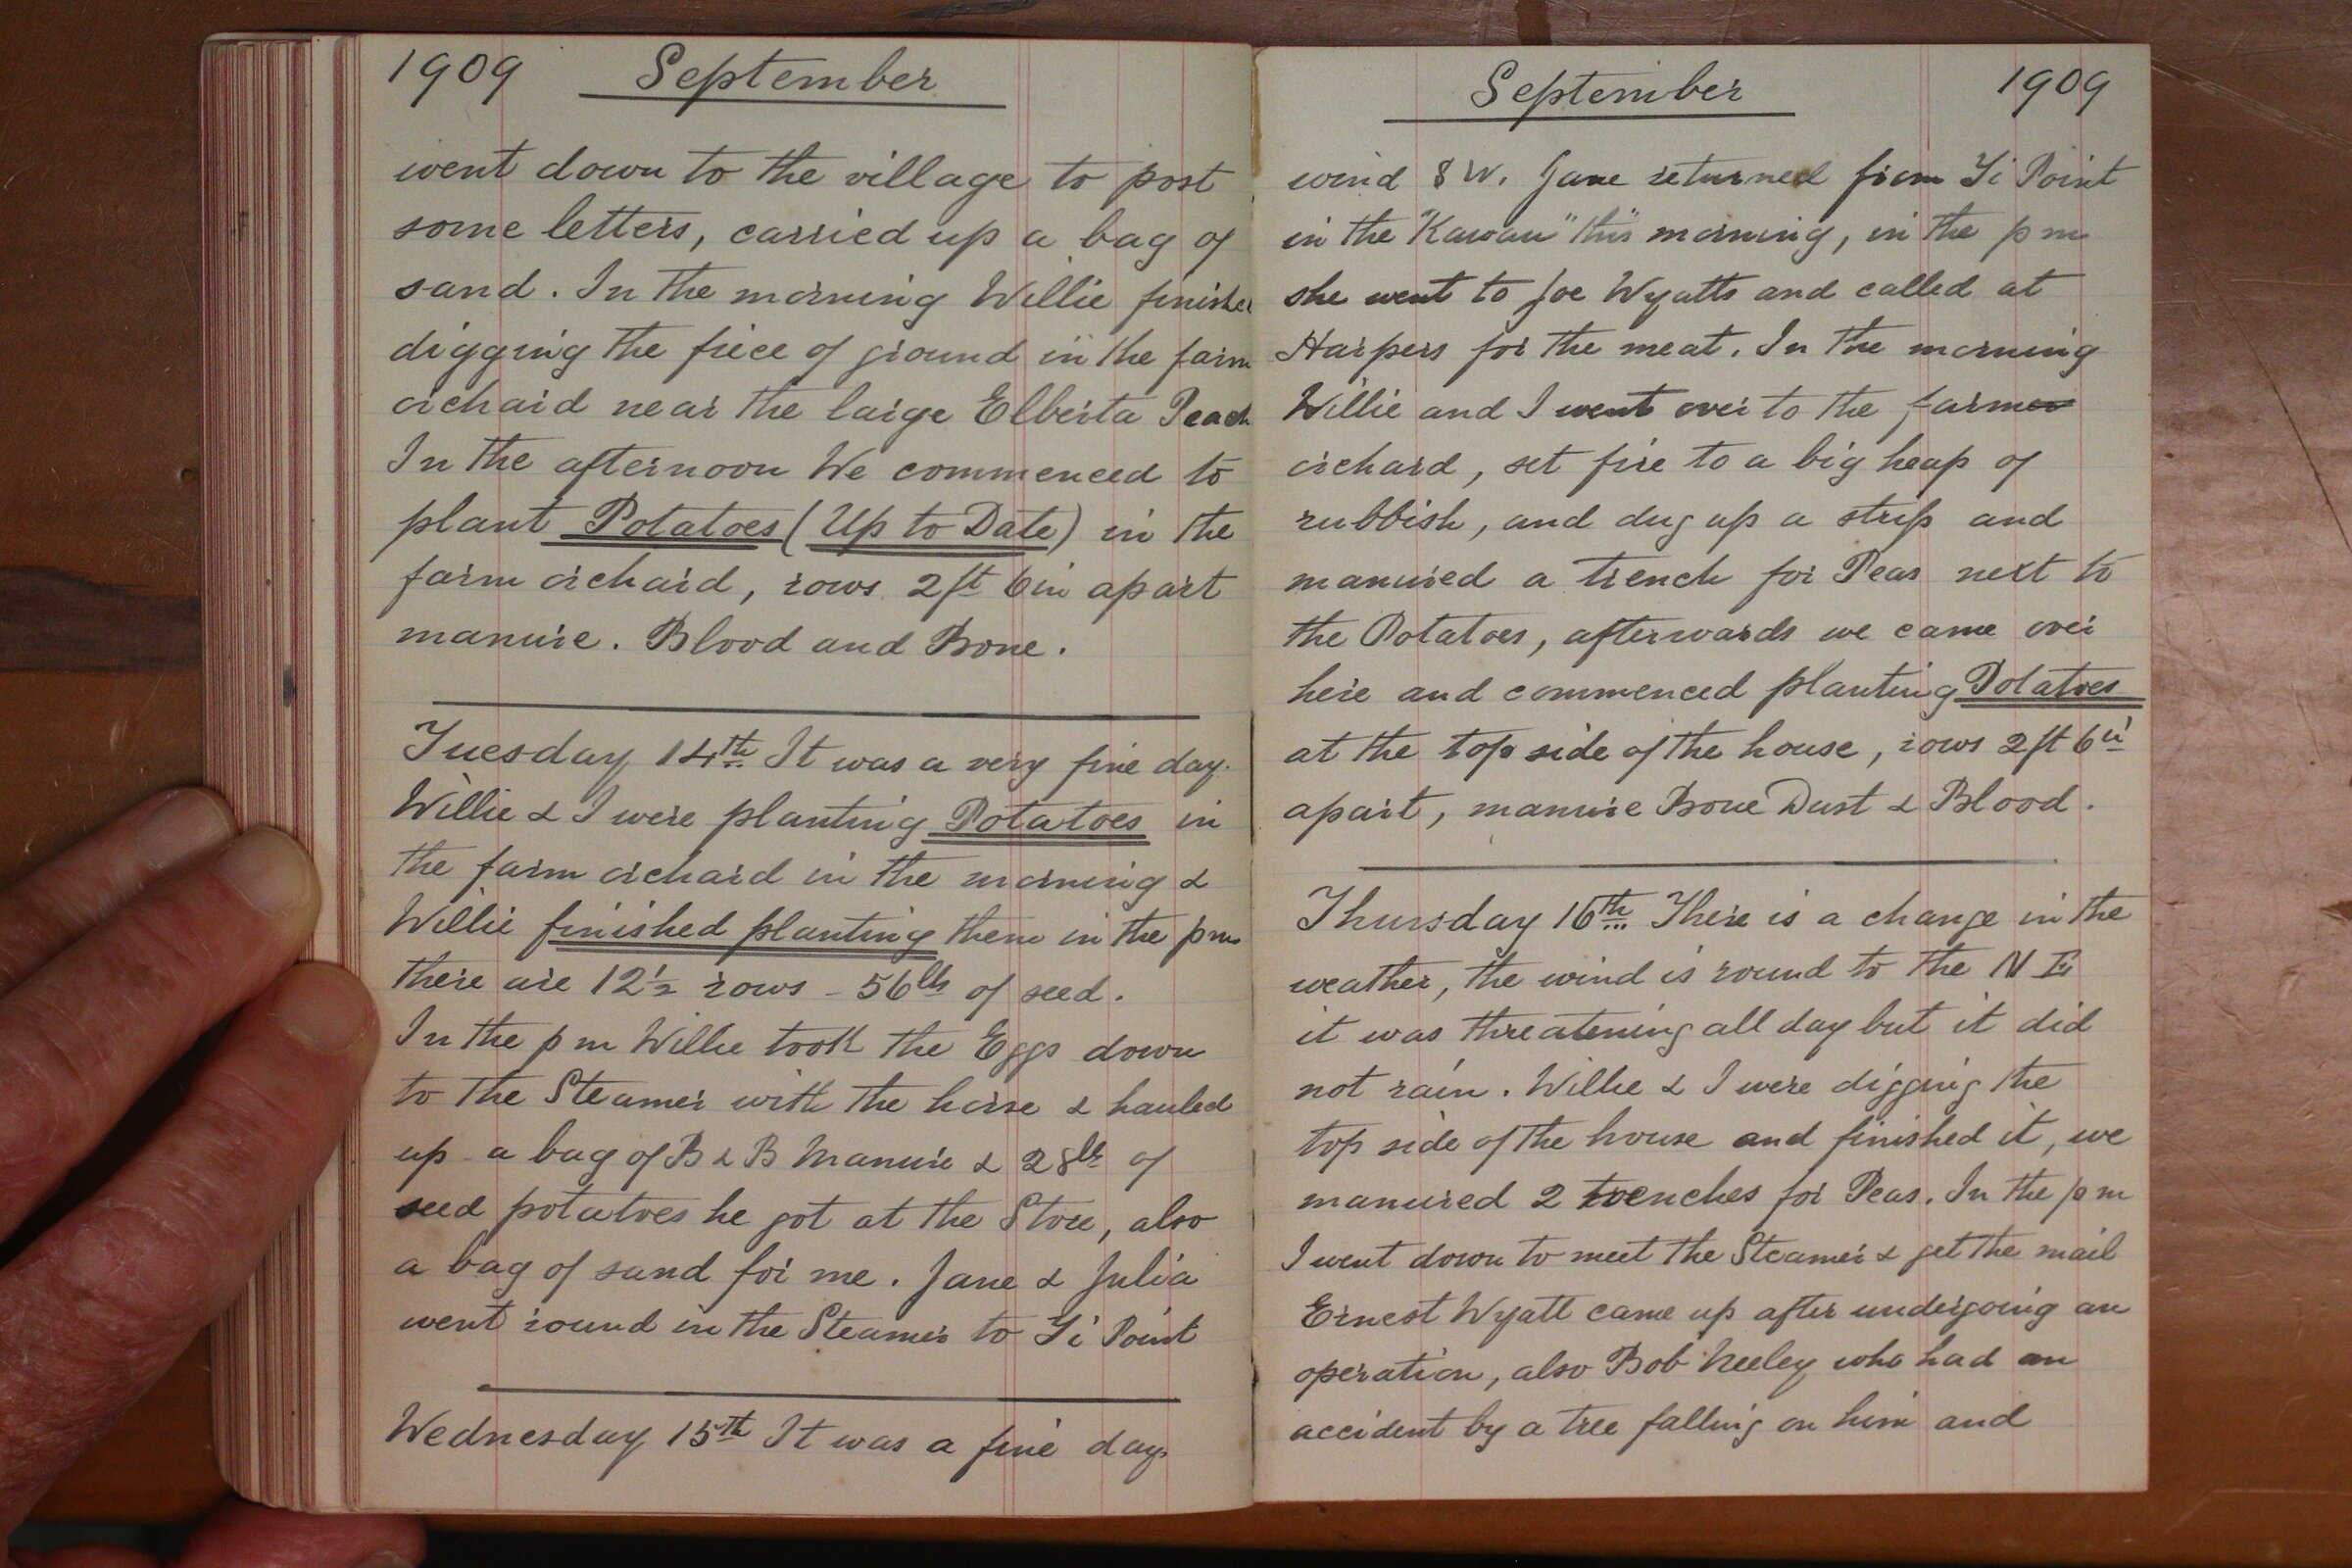 1909 September
went down to the village to post
some letters, carried up a bag of
sand. In the morning Willie finished
digging the piece of ground in the farm
orchard near the large Elberta Peach
In the afternoon We commenced to
plant Potatoes (Up to Date) in the
farm orchard, rows 2ft 6in apart
manure. Blood and Bone.
Tuesday 14th It was a very fine day.
Willie & I were planting Potatoes in
the farm orchard in the morning &
Willie finished planting them in the pm
there are 12½ rows - 56lbs of seed.
In the pm Willie took the Eggs down
to the Steamer with the horse & hauled
up a bag of B & B Manure & 28lb of
seed potatoes he got at the Store, also
a bag of sand for me. Jane & Julia
went round in the Steamer to Ti Point
Wednesday 15th It was a fine day
September 1909
wind S W. Jane returned from Ti Point
in the "Kawau" this morning, in the pm
she went to Joe Wyatts and called at
Harpers for the meat. In the morning
Willie and I went over to the farmer
orchard, set fire to a big heap of
rubbish, and dug up a strip and
manured a trench for Peas next to
the Potatoes, afterwards we came over
here and commenced planting Potatoes
at the top side of the house, rows 2ft 6in
apart, manure Bone Dust & Blood.
Thursday 16th There is a change in the
weather, the wind is round to the N E
it was threatening all day but it did
not rain. Willie & I were digging the
top side of the house and finished it, we
manured 2 trenches for Peas. In the pm
I went down to meet the Steamer & get the mail
Ernest Wyatt came up after undergoing an
operation, also Bob Neeley who had an
accident by a tree falling on him and